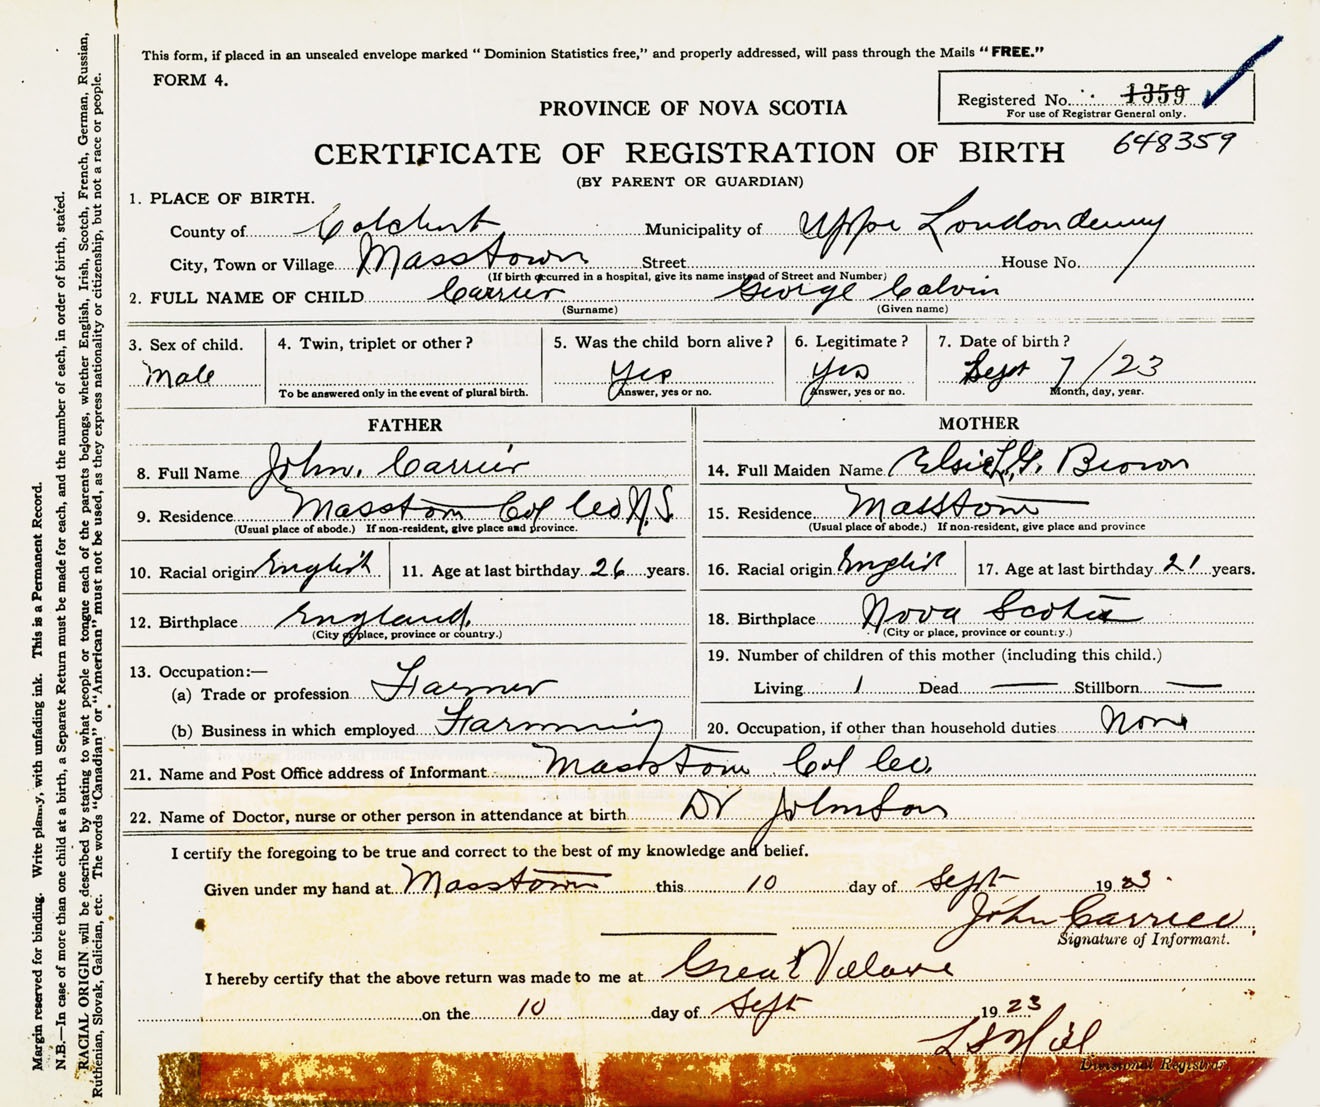 This form, if placed in an unsealed envelope marked "Dominion Statistics free," and properly addressed, will pass through the Mails "FREE."
FORM 4.
Registered No. 1359
For use of Registrar General only.
PROVINCE OF NOVA SCOTIA
648359
CERTIFICATE OF REGISTRATION OF BIRTH
(BY PARENT OR GUARDIAN)
1. PLACE OF BIRTH.
County of Colchest Municipality of Upper Londonderry
City, Town or Village Masstown Street House No.
(If birth occurred in a hospital, give its name instead of Street and Number)
2. FULL NAME OF CHILD Carrier George Calvin
(Surname) (Given name)
3. Sex of child. 4. Twin, triplet or other? 5. Was the child born alive? 6. Legitimate? 7. Date of birth?
Male Yes Yes Sept 7/23
To be answered only in the event of plural birth. Answer, yes or no. Answer, yes or no. Month, day, year.
FATHER
8. Full Name John. Carrier
9. Residence Masstown Col Co N.S.
(Usual place of abode.) If non-resident, give place and province.
10. Racial origin English 11. Age at last birthday 26 years.
12. Birthplace England.
(City or place, province or country.)
13. Occupation:—
(a) Trade or profession Farmer
(b) Business in which employed Farmming
MOTHER
14. Full Maiden Name Elsie L. G. Brown
15. Residence Masstown
(Usual place of abode.) If non-resident, give place and province
16. Racial origin English 17. Age at last birthday 21 years.
18. Birthplace Nova Scotia
(City or place, province or country.)
19. Number of children of this mother (including this child.)
Living 1 Dead — Stillborn —
20. Occupation, if other than household duties None
21. Name and Post Office address of Informant Masstown Col Co.
22. Name of Doctor, nurse or other person in attendance at birth Dr Johnson
I certify the foregoing to be true and correct to the best of my knowledge and belief.
Given under my hand at Masstown this 10 day of Sept 1923.
John Carrier
Signature of Informant.
I hereby certify that the above return was made to me at Great Village
on the 10 day of Sept 1923
Hill
Divisional Registrar.
Margin reserved for binding. Write plainly, with unfading ink. This is a Permanent Record.
N.B.—In case of more than one child at a birth, a Separate Return must be made for each, and the number of each, in order of birth, stated.
RACIAL ORIGIN will be described by stating to what people or tongue each of the parents belongs, whether English, Irish, Scotch, French, German, Russian,
Ruthenian, Slovak, Galician, etc. The words "Canadian" or "American" must not be used, as they express nationality or citizenship, but not a race or people.